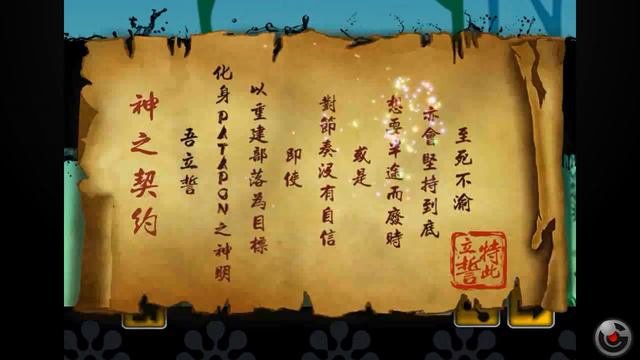 神之契約
吾立誓
化身PATAPON之神明
以重建部落為目標
即使
對節奏沒有自信
或是
想要半途而廢時
亦會堅持到底
至死不渝
特此
立誓